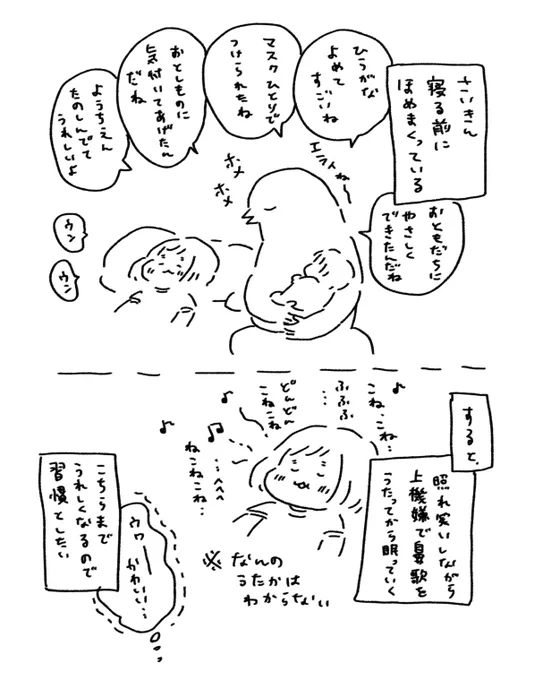 さいきん
寝る前に
ほめまくっている
ひらがな
よめて
すごいね
マスクひとりで
つけられたね
おとしものに
気付いてあげたん
だね
ようちえん
たのしんでて
うれしいよ
エライね〜
おともだちに
やさしく
できたんだね
ホメ
ホメ
ウン
ウン
すると、
照れ笑いしながら
上機嫌で鼻歌を
うたってから眠っていく
こね…こね…
ふふふ
…
どんどん
こねこね
…へへへ
ねこねこね…
※なんの
うたかは
わからない
ウワーーかわいい…
こちらまで
うれしくなるので
習慣としたい